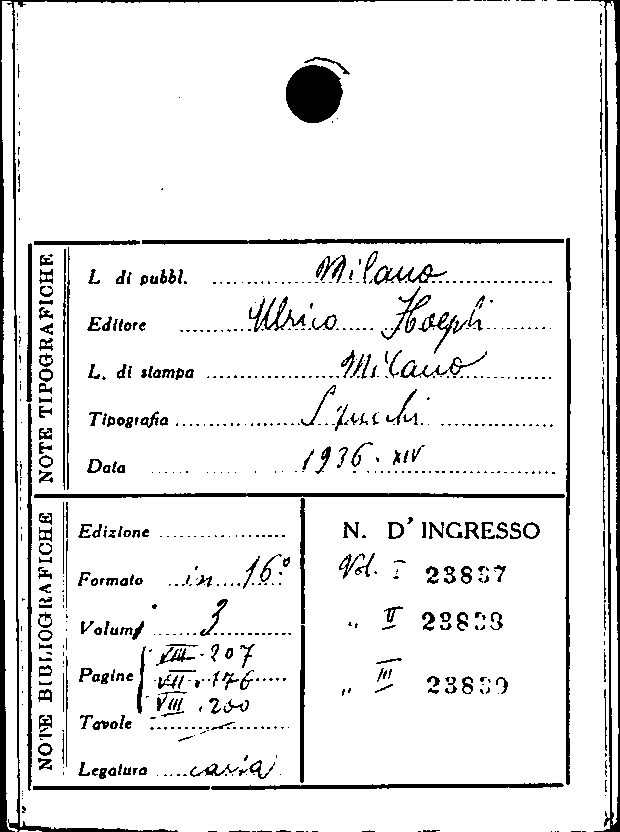 NOTE TIPOGRAFICHE
L. di pubbl. Milano
Editore Ulrico Hoepli
L. di stampa Milano
Tipografia
Data 1936 · XIV
NOTE BIBLIOGRAFICHE
Edizione
Formato in 16º
Volumi 3
Pagine VIII · 207
VII · 176
VIII · 200
Tavole
Legatura
N. D' INGRESSO
Vol. I 23837
„ II 23838
„ III 23839